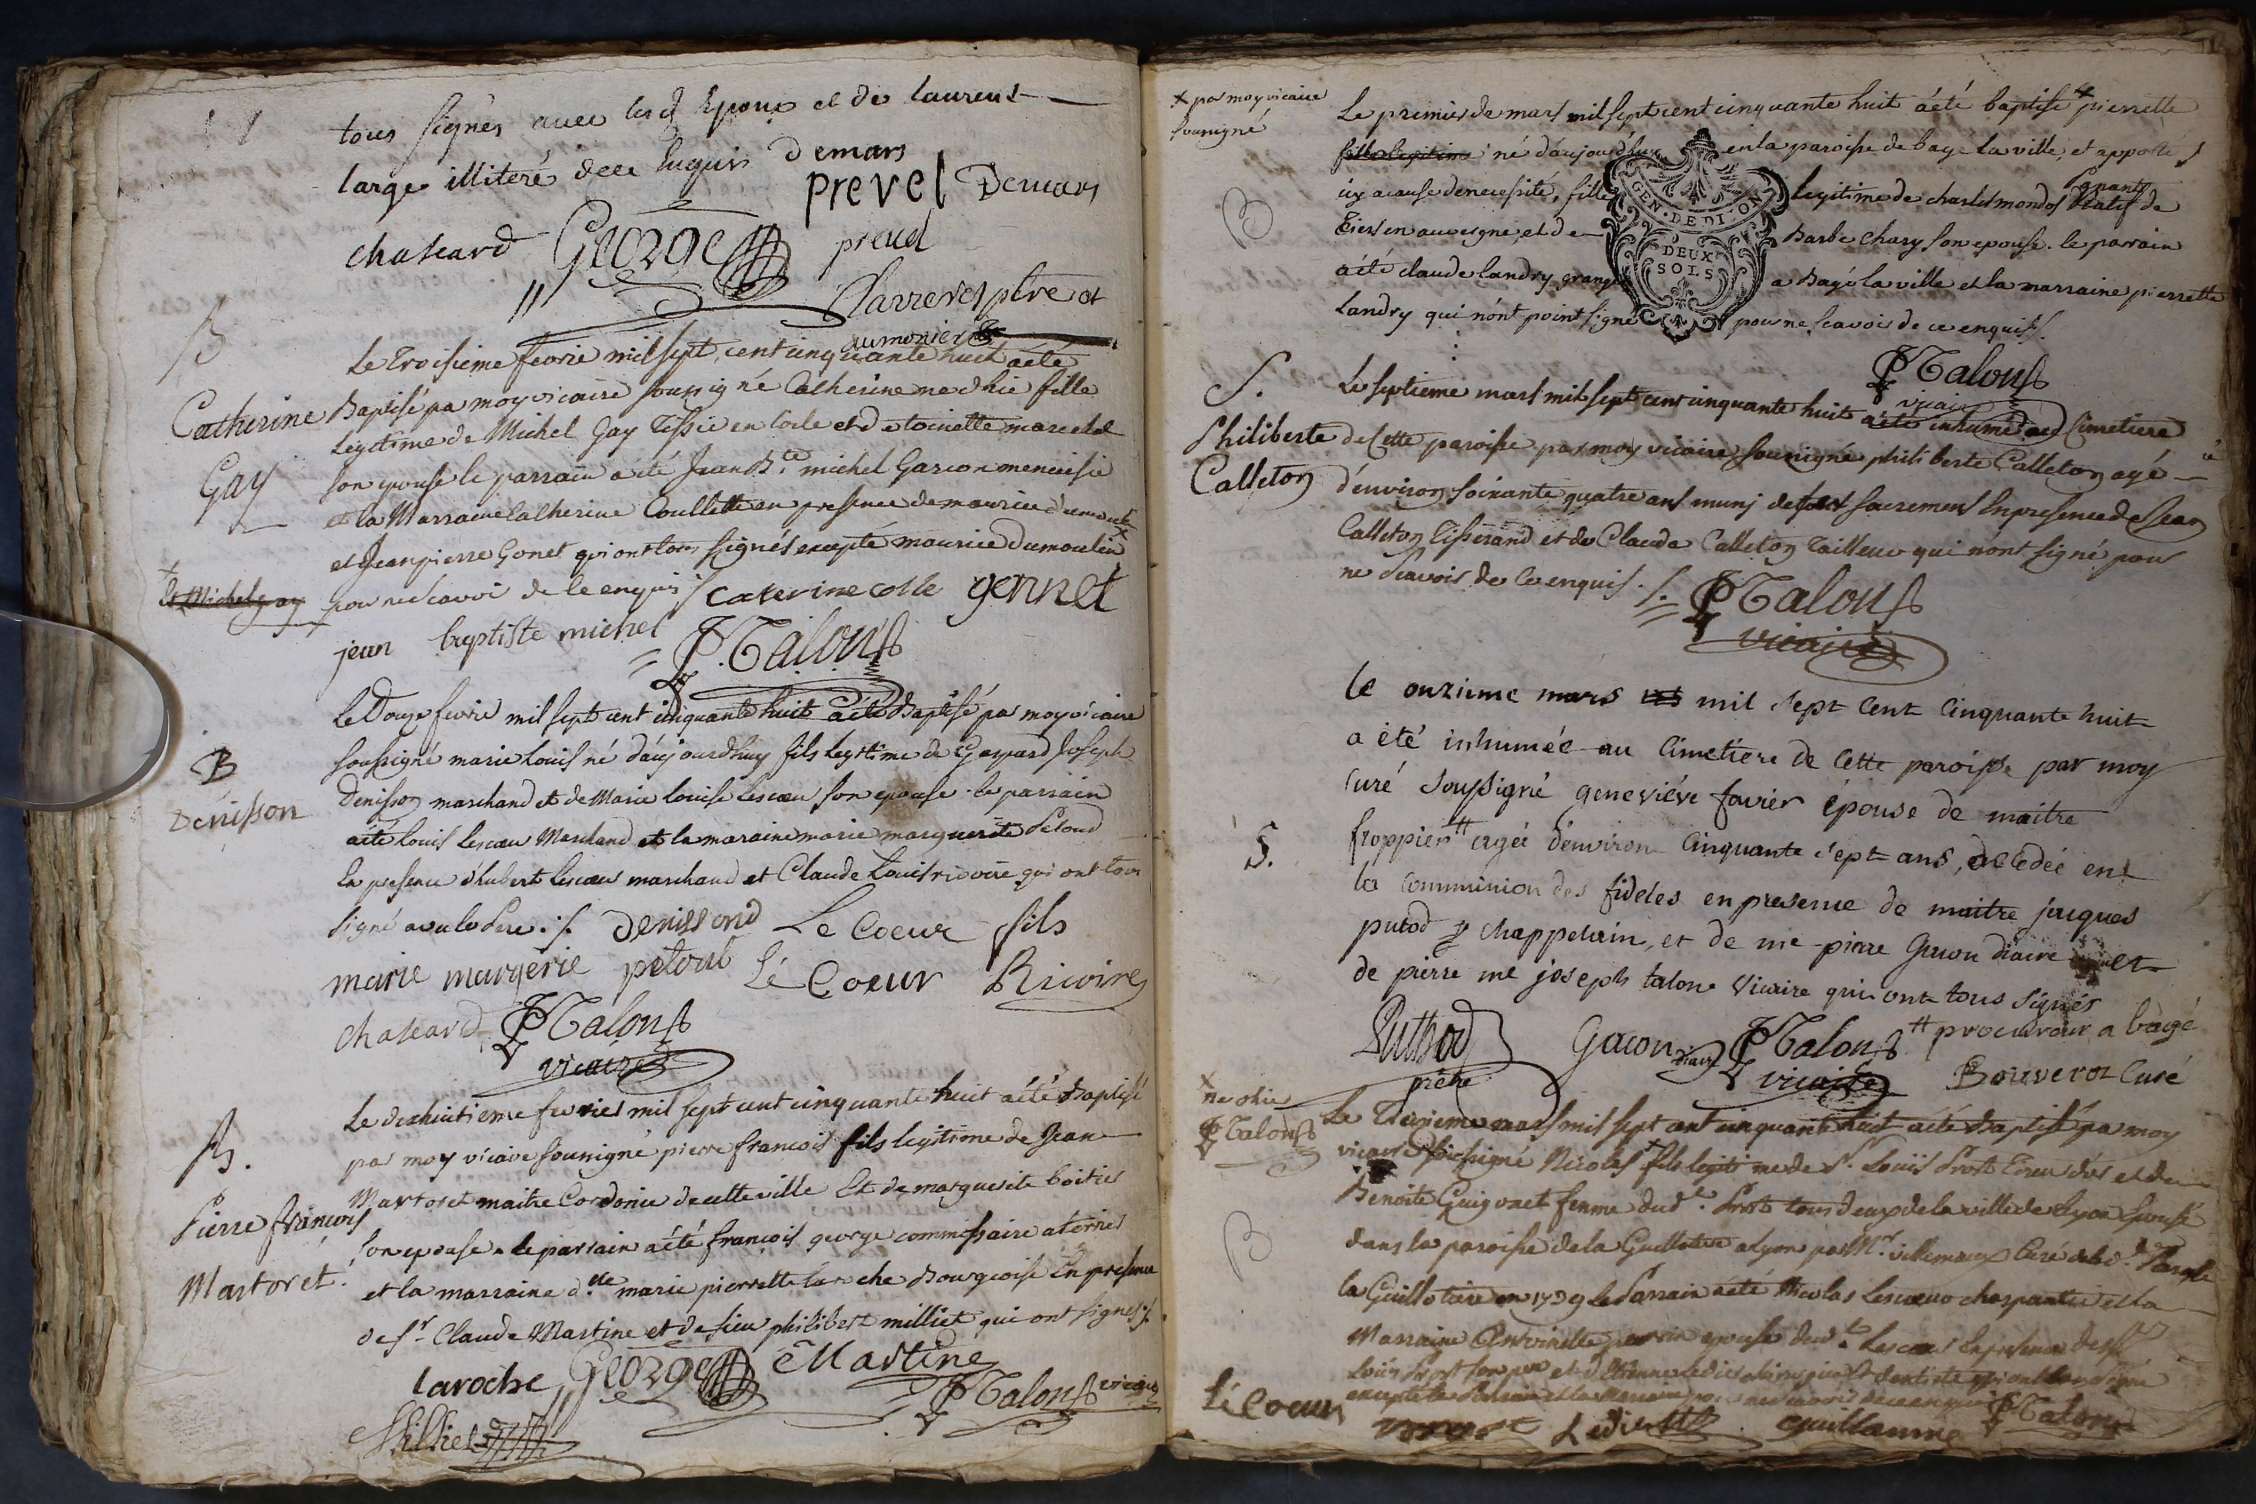 tous signés avec lesd Epoux et de laurent
large illiteré de ce enquis demars
prevel Demars
chaseard George preud
Clarreres ptre et
aumonier
B
Le troisieme fevrie mil sept cent cinquante huit a été
Catherine Baptisé pa moy vicaire soussigné Catherine ne d'hie fille
legitime de Michel Gay Tissie en toile et de toinette marechal
Gay son epouse le parrain a été Jean Bte michel Garcon menuisie
et la Marraine Catherine Coullette en presence de maurice dumoulin
et Jean pierre Gonet qui ont tous signés excepté maurice Dumoulin x
x et Michel gay pour ne scavoi de ce enquis /. caterine colle gennet
jean baptiste michel P Talon
Le Douze fevrie mil sept cent cinquante huit a été Baptisé pa moy vicaire
B soussigné marie Louis né d'aujourdhuy fils legitime de Gaspard Joseph
Denisson Denisson marchand et de Marie louise Lescoeu son epouse . le parrain
a été louis Lescoeu Marchand et la maraine marie marguerite Peloud
En presence d'hubert Lescoeu marchand et Claude Louis ricoire qui ont tous
signé avec le Pere :/. denissond Le Coeur fils
marie margerie peloul Lé Coeur Ricoire
chaseard P Talon
vicaire
Le dixhuitieme fevrier mil sept cent cinquante huit a été Baptisé
B. pas moy vicaire soussigné pierre francois fils legitime de Jean
Pierre françois Martoret maitre Cordonie de cette ville Et de marguerite boitier
son epouse . le parrain a été françois george commissaire a terrier
Martoret. et la marraine dlle marie pierrette laroche Bourgeoise En presence
de sr Claude Martine et de sieu philibert milliet qui ont signés /.
laroche George CMartine
P Talon vicaire
Milliet
x pa moy vicaire
soussigné
Le premier de mars mil sept cent cinquante huit a été baptisé x pierrette
fille legitime né d'aujourd'huy en la paroisse de bagé la ville, et apporté
icy a cause de necessité, fille legitime de charles mondos natif de
B Tiers en auvergne, et de Barbe Chary son epouse . le parrain
GEN·DE DI·ON
DEUX
SOLS
a été claude Landry granger a Bagé la ville et la marraine pierrette
Landry qui n'ont point signé pour ne scavoir de ce enquis /.
P Talon
vicaire
S. Le septieme mars mil sept cent cinquante huit a été inhumé au Cimetiere
Philiberte de Cette paroisse par moy vicaire soussigné philiberte Calleton agé
Calleton d'environ soixante quatre ans muni de ses sacremens En presence de Jean
Calleton Tisserand et de Claude Calleton Tailleur qui n'ont signé pour
ne scavoir de ce enquis . /. P Talon
vicaire
le onzieme mars mil sept cent cinquante huit
a été inhumée au cimetiere de Cette paroisse par moy
curé soussigné geneviéve favier épouse de maitre
S. froppier # agée d'environ cinquante sept ans, decedée en
la communion des fideles en presence de maitre jacques
putod chappelain, et de me pierre gacon diacre et
de pierre me joseph talon vicaire qui ont tous signés
# procureur a bagé
Puthod prêtre Gacon diacre P Talon vicaire Bouverot Curé
x
ne d'hie
P Talon
Le Treizieme mars mil sept cent cinquante huit a été Baptisé pa moy
vicaire soussigné Nicolas x fils legitime de Sr. Louis Prost et de
Benoite Guigonet femme dud. Prost tous deux de la ville de Lyon Epousé
B dans la paroisse de la Guillotiere a Lyon par Mr. villemaux Curé de lad.
la Guillotiere en 1729 le Parrain a été Nicolas Lescoeu charpantie et la
Marraine epouse dud. Lescoeu En presence de
Louis Prost son pere et d'Etienne Ledieu qui ont signé
excepté
Lé Coeur Ledieu guillaume P Talon